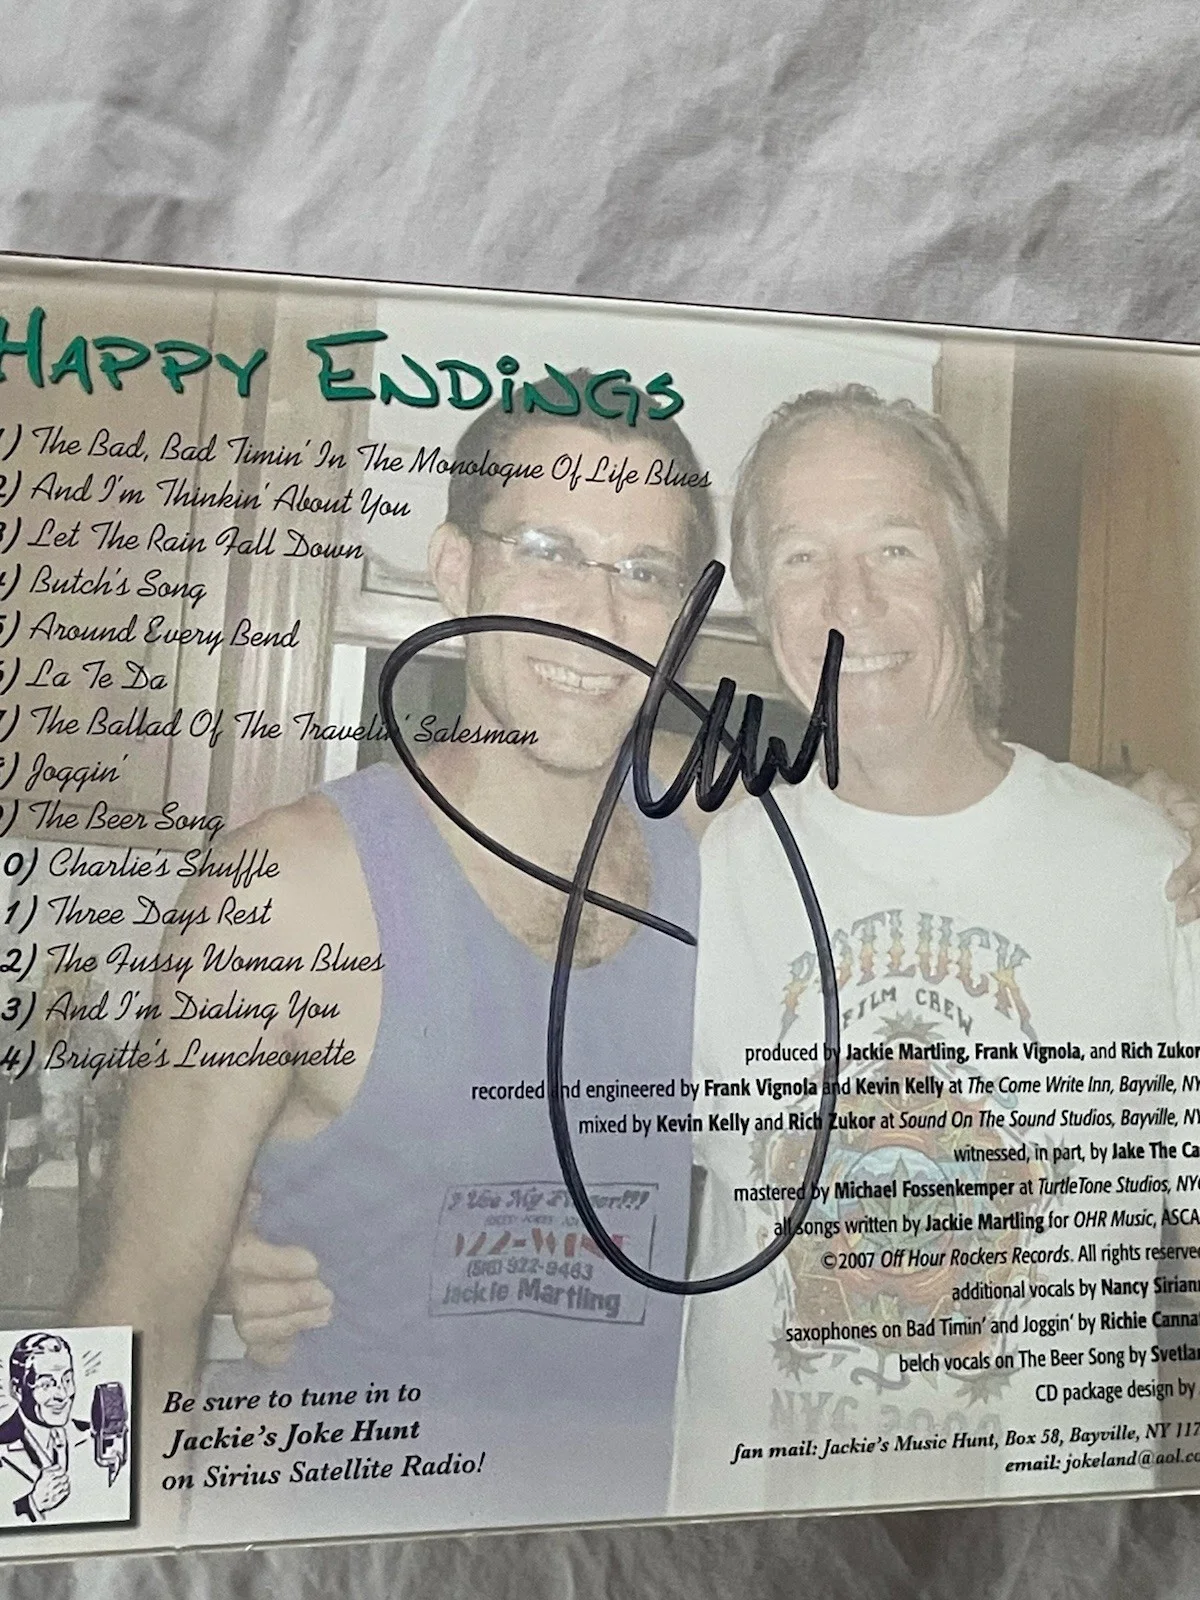 HAPPY ENDiNGS
1) The Bad, Bad Timin' In The Monologue Of Life Blues
2) And I'm Thinkin' About You
3) Let The Rain Fall Down
4) Butch's Song
5) Around Every Bend
6) La Te Da
7) The Ballad Of The Travelin' Salesman
8) Joggin'
9) The Beer Song
0) Charlie's Shuffle
1) Three Days Rest
2) The Fussy Woman Blues
3) And I'm Dialing You
4) Brigitte's Luncheonette
POTLUCK
FILM CREW
produced by Jackie Martling, Frank Vignola, and Rich Zukor
recorded and engineered by Frank Vignola and Kevin Kelly at The Come Write Inn, Bayville, NY
mixed by Kevin Kelly and Rich Zukor at Sound On The Sound Studios, Bayville, NY
witnessed, in part, by Jake The Ca
mastered by Michael Fossenkemper at TurtleTone Studios, NY
all songs written by Jackie Martling for OHR Music, ASCA
©2007 Off Hour Rockers Records. All rights reserve
additional vocals by Nancy Sirian
saxophones on Bad Timin' and Joggin' by Richie Canna
belch vocals on The Beer Song by Svetla
CD package design by
fan mail: Jackie's Music Hunt, Box 58, Bayville, NY 117
email: jokeland@aol.co
I Use My Finger!!!
(516) 922-9463
Jackie Martling
NYC
Be sure to tune in to
Jackie's Joke Hunt
on Sirius Satellite Radio!